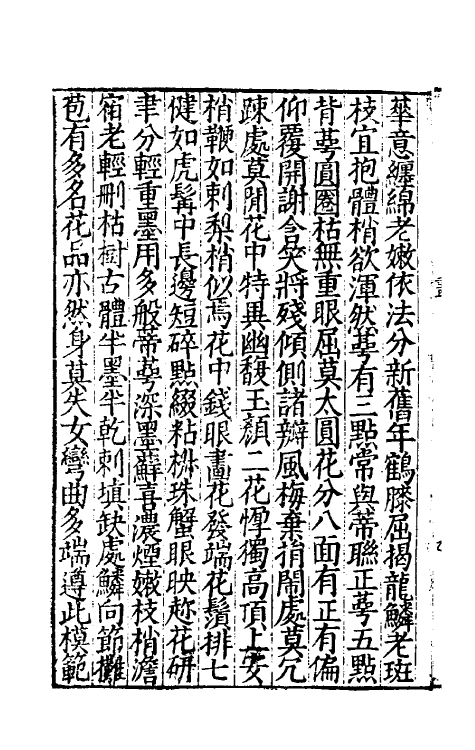 華意纏綿老嫩依法分新舊年鶴膝屈揭龍鱗老斑
枝宜抱體梢欲渾然萼有三點常與蒂聯正萼五點
背萼圓圈枯無重眼屈莫太圓花分八面有正有偏
仰覆開謝含笑將殘傾側諸瓣風梅棄捐鬧處莫冗
踈處莫閒花中特異幽馥王顏二花惲獨高頂上安
梢鞭如刺梨梢似焉花中錢眼畫花發端花鬚排七
健如虎髯中長邊短碎點綴粘椒珠蟹眼映趂花研
聿分輕重墨用多般蒂萼深墨蘚喜濃煙嫩枝梢澹
宿老輕刪枯樹古體半墨半乾刺填缺處鱗向節攤
苞有多名花品亦然身莫失女彎曲多端遵此模範